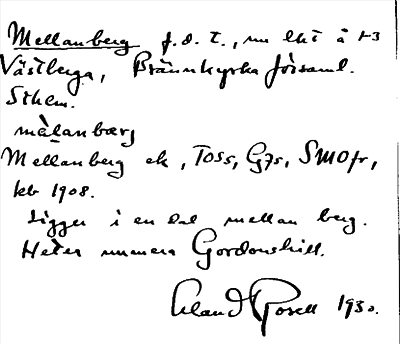 Mellanberg f.d. t., nu lht å 1-3
Västberga, Brännkyrka församl.
Sthlm.
mèlanbærj
Mellanberg ek, Toss, Gjs, SMOfr,
kb 1908.
Ligger i en dal mellan berg.
Heter numera Gordonshill.
Gosell 1930.